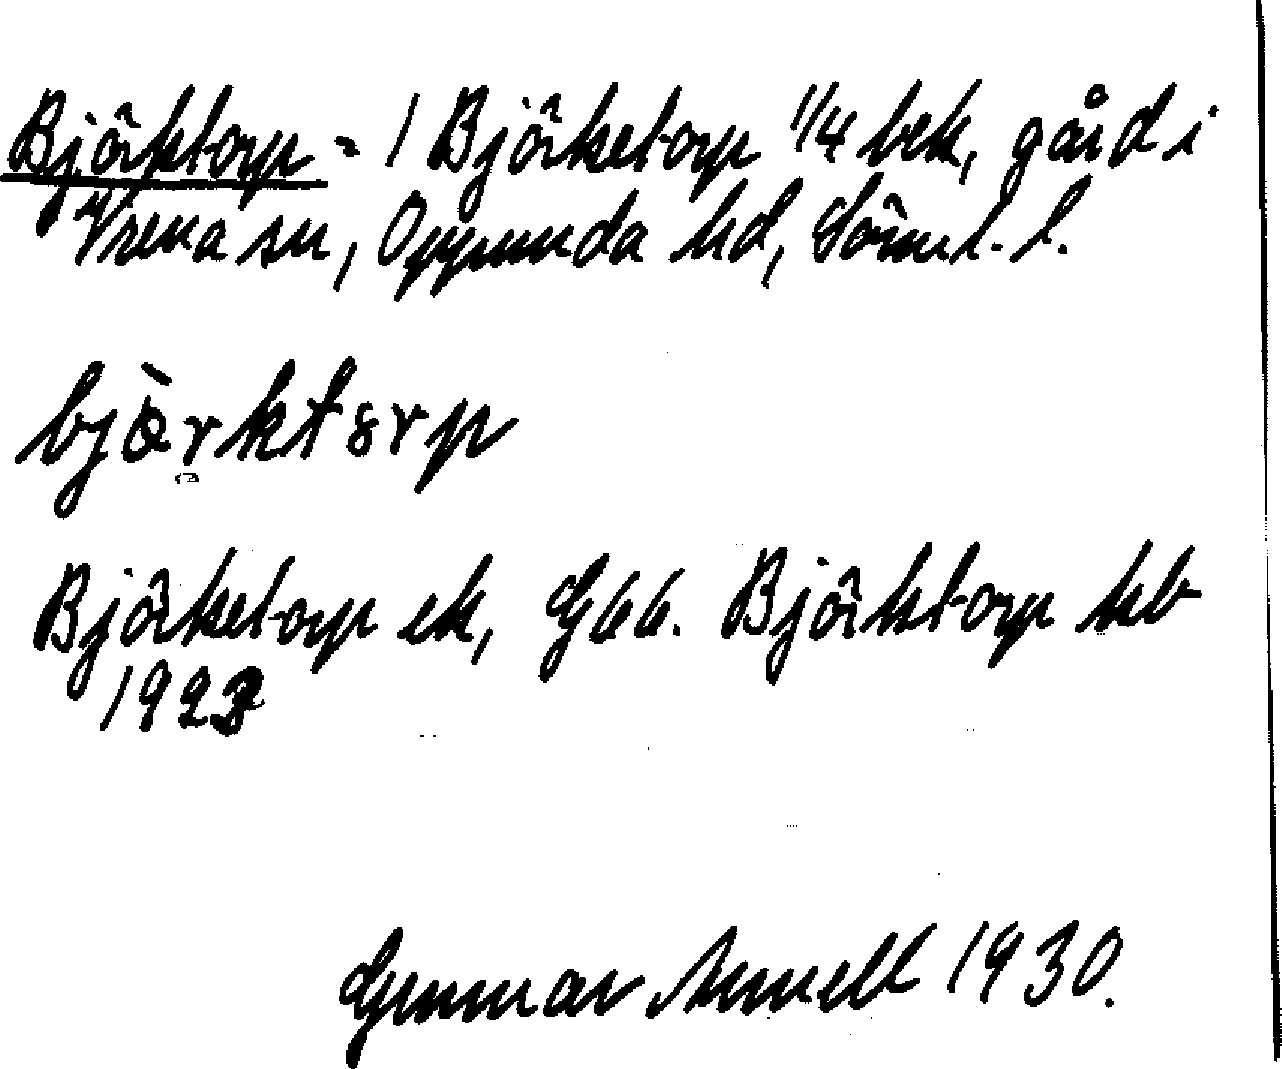 Björktorp = 1 Björketorp 1/4 bek, gård i
Vrena sn, Oppunda hd, Söml. l.
bjœ̀rktȣrp
Björketorp ek, G66. Björktorp kb
1923
Gunnar Annell 1930.